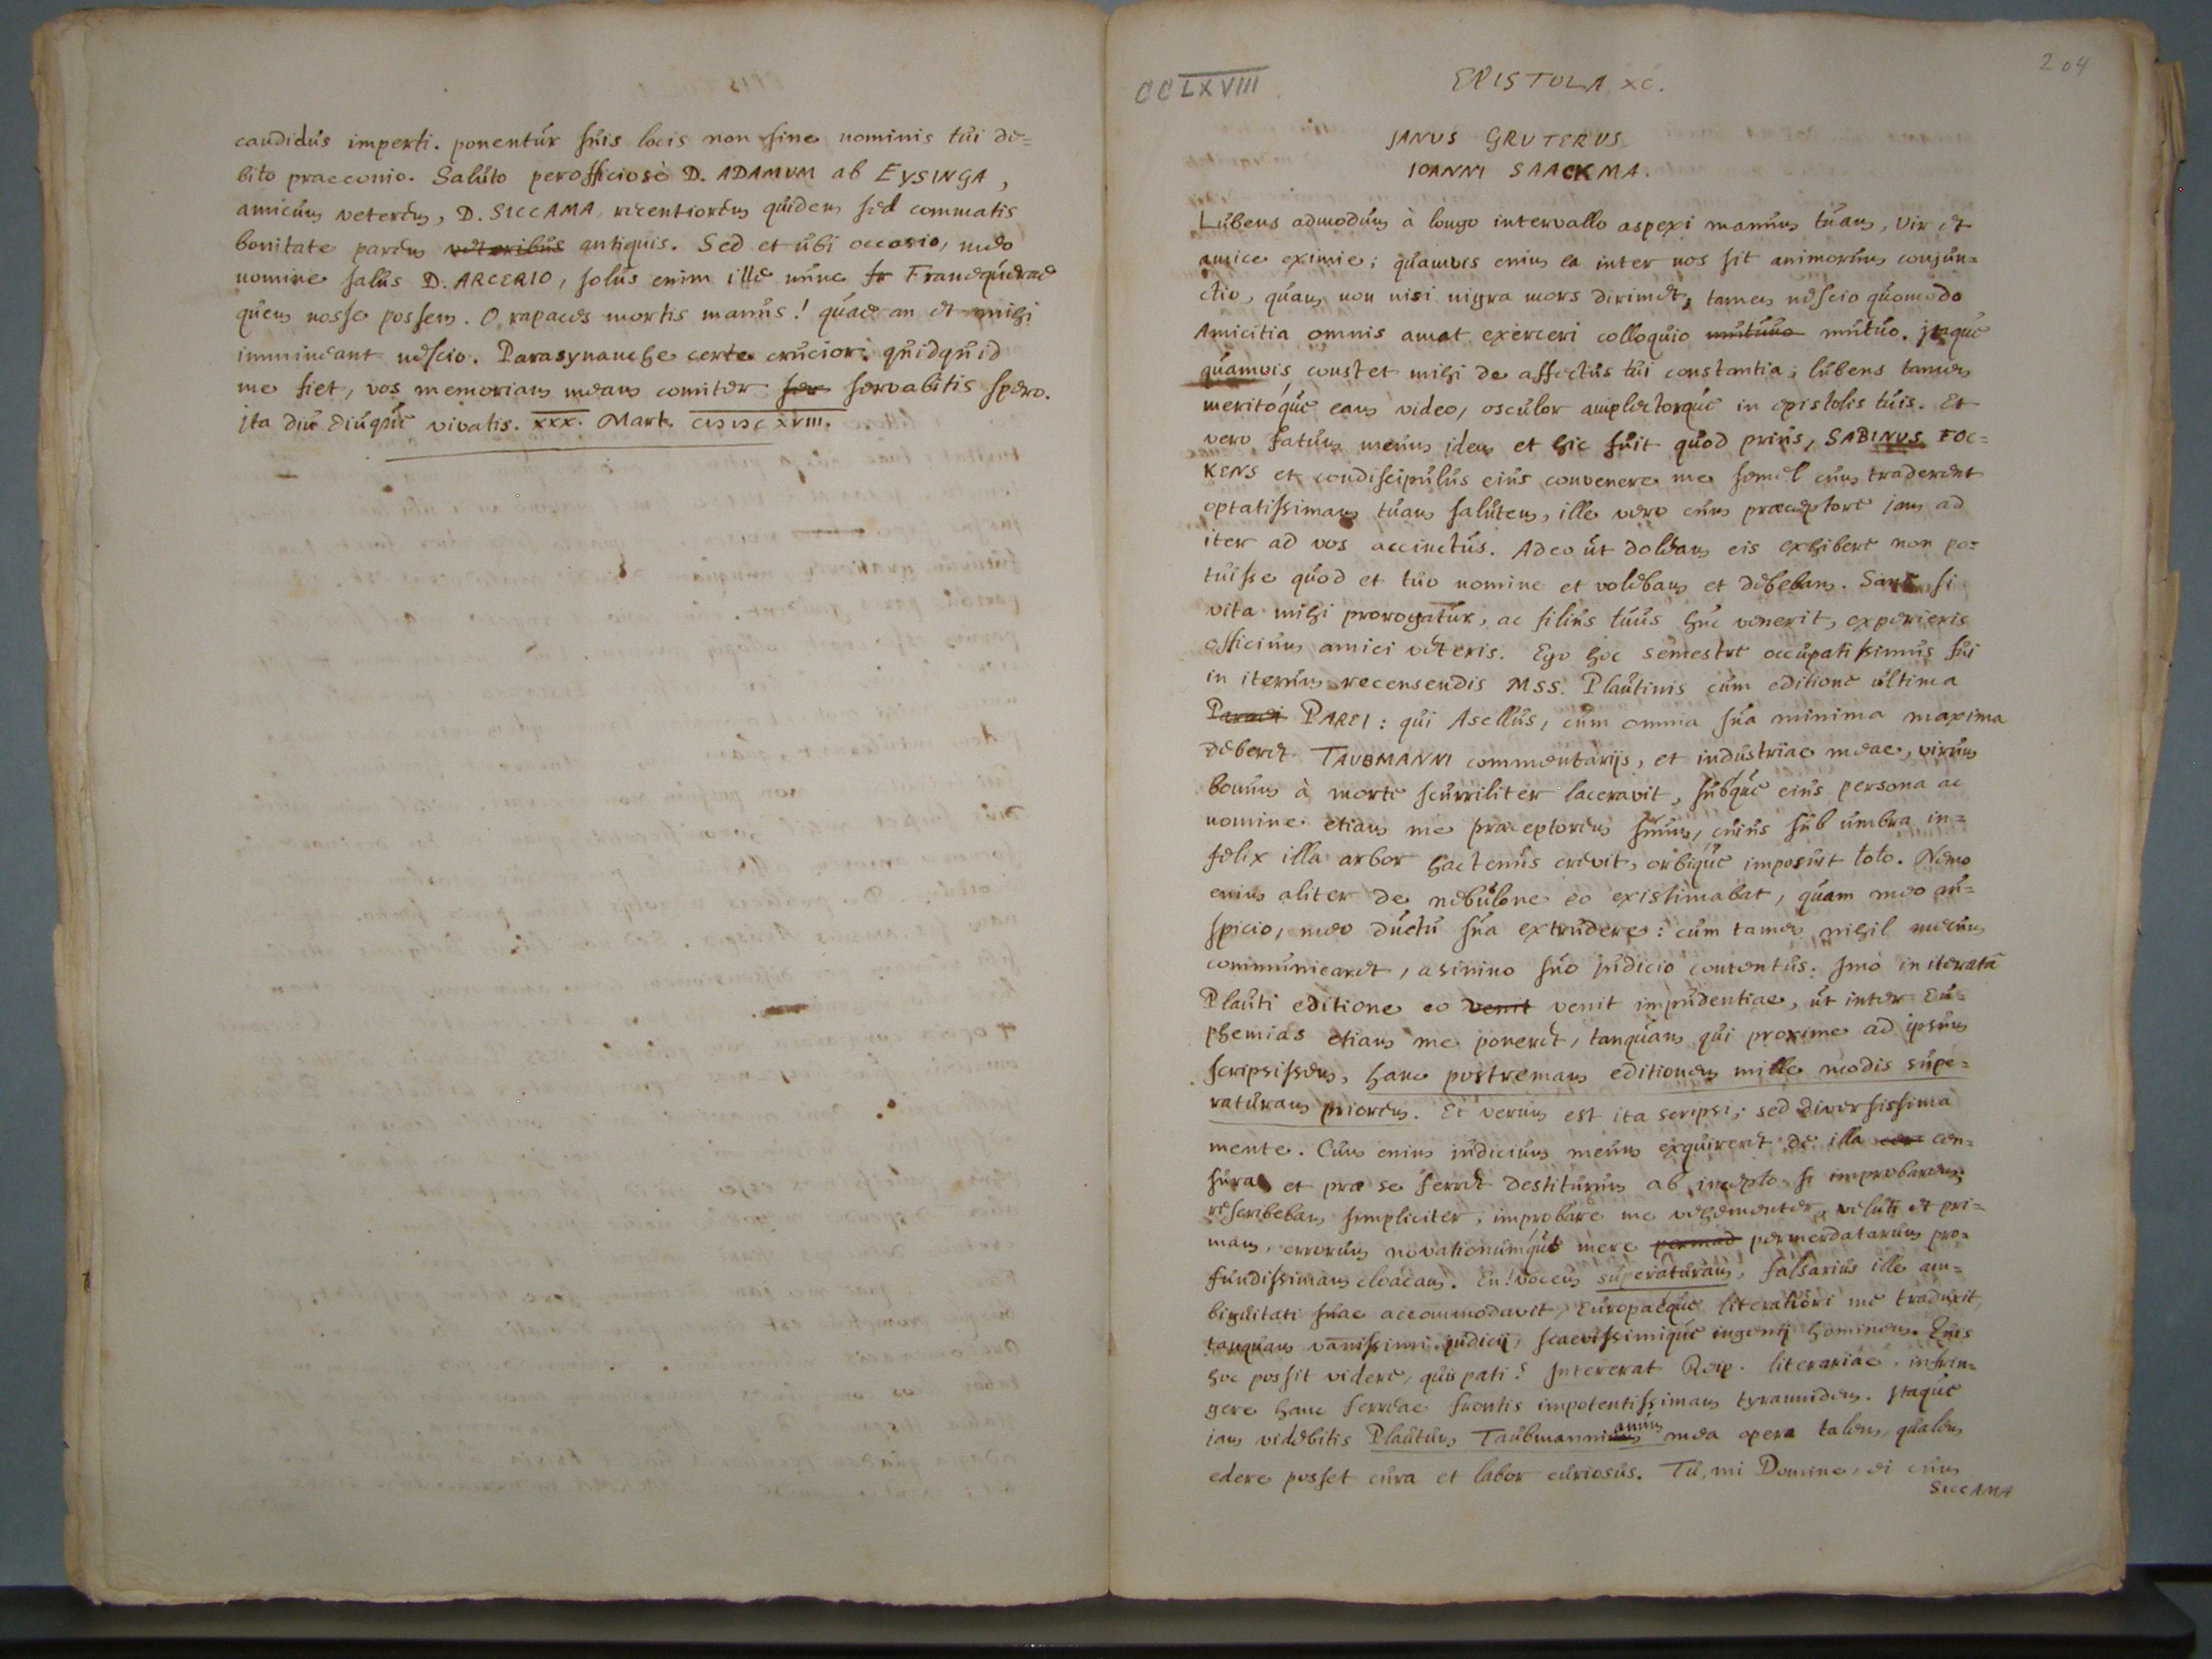 candidus imperti. ponentur suis locis non sine nominis tui de=
bito praeconio. Saluto perofficiosè D. ADAMUM ab EYSINGA,
amicum veterem, D. SICCAMA, recentiorem quidem sed commatis
bonitate parem veteribus antiquis. Sed et ubi occasio, meo
nomine salus D. ARCERIO, solus enim ille nunc fr Franequerae
quem nosse possem. O rapaces mortis manus! quae an et mihi
immineant nescio. Parasynanche certe crucior. quidquid
me fiet, vos memoriam meam comiter ser servabitis spero.
ita diu diuque vivatis. XXX. Mart. CIƆIƆC XVIII.
CCLXVIII
EPISTOLA XC.
204
JANUS GRUTERUS
IOANNI SAACKMA.
Lubens admodum à longo intervallo aspexi manum tuam, Vir et
amice eximie; quamvis enim ea inter nos sit animorum conjun=
ctio, quam non nisi nigra mors dirimet, tamen nescio quomodo
Amicitia omnis amat exerceri colloquio mutuuo mutuo. itaque
quamvis constet mihi de affectus tui constantia; lubens tamen
meritoque eam video, osculor amplectorque in epistolis tuis. Et
vero fatum meum idem et hic fuit quod prius, SABINUS FOC=
KENS et condiscipulus eius convenere me semel cum traderent
optatissimam tuam salutem, ille vero cum praeceptore jam ad
iter ad vos accinctus. Adeo ut doleam eis exhibere non po=
tuisse quod et tuo nomine et volebam et debebam. Sane si
vita mihi prorogatur, ac filius tuus huc venerit, experieris
officium amici veteris. Ego hoc semestre occupatissimus fui
in iterum recensendis MSS. Plautinis cum editione ultima
PAREI: qui Asellus, cum omnia sua minima maxima
deberet TAUBMANNI commentarijs, et industriae meae, virum
bonum à morte scurriliter laceravit, subque eius persona ac
nomine etiam me praeceptorem suum, cuius sub umbra in=
felix illa arbor hactenus crevit, orbique imposuit toto. Nemo
enim aliter de nebulone eo existimabat, quam meo au=
spicio, meo ductu sua extrudere: cum tamen nihil mecum
communicaret, asinino suo judicio contentus. Imo in iteratâ
Plauti editione eo venit venit impudentiae, ut inter Eu=
phemias etiam me poneret, tanquam qui proxime ad ipsum
scripsissem, hanc postremam editionem mille modis supe=
raturam priorem. Et verum est ita scripsi; sed diversissima
mente. Cum enim judicium meum exquireret de illa cen=
sura et prae se ferret destiturum ab incepto si improbarem;
rescribebam simpliciter, improbare me vehementer, veluti et pri=
mam, errorum novationumque mere permerdatarum pro=
fundissimam cloacam. En! vocem superaturam, falsarius ille am=
biguitati suae accommodavit, Europaeque literatiori me traduxit,
tanquam vanissimi judicij, scaevissimique ingenij hominem. Quis
hoc possit videre, quis pati? Intererat Reip. literariae, infrin=
gere hanc ferreae frontis impotentissimam tyrannidem. Itaque
iam videbitis Plautum Taubmannianum mea opera talem, qualem
edere posset cura et labor curiosus. Tu, mi Domine, ei cum
SICCAMA